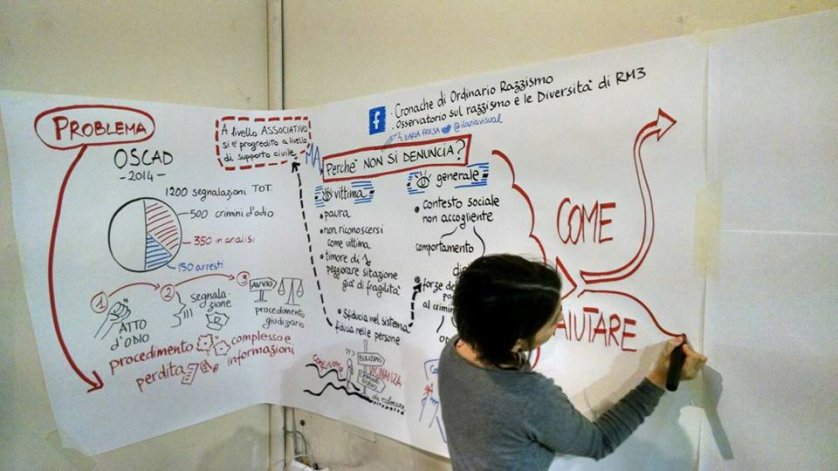 PROBLEMA
OSCAD
- 2014 -
1200 segnalazioni TOT.
500 crimini d'odio
350 in analisi
150 arresti
1
ATTO
d'odio
2
segnala-
zione
3
AVVIO
procedimento
giudiziario
procedimento
complesso e
perdita
informazioni
A livello ASSOCIATIVO
si è progredito a livello
di supporto civile
MA
f
• Cronache di Ordinario Razzismo
• Osservatorio sul razzismo e le Diversità di RM3
@ilariavisual
Perché NON SI DENUNCIA?
vittima
• paura
• non riconoscersi
come vittima
• timore di
peggiorare sitazione
già di fragilità
• Sfiducia nel sistema
fiducia nelle persone
generale
• contesto sociale
non accogliente
comportamento
• forze de
al crimi
VICINANZA
COME
AIUTARE